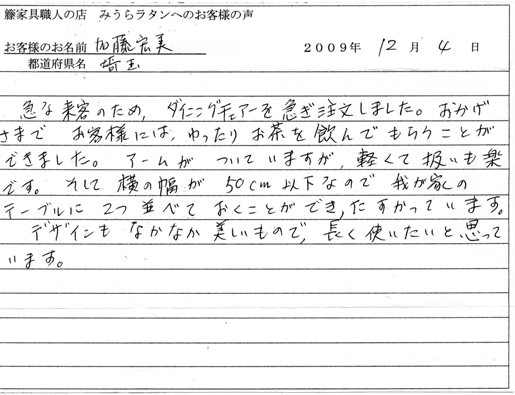 籐家具職人の店 みうらラタンへのお客様の声
お客様のお名前 加藤宏美 2009年 12月 4日
都道府県名 埼玉
急な来客のため、ダイニングチェアーを急ぎ注文しました。おかげ
さまで お客様には、ゆったりお茶を飲んでもらうことが
できました。アームがついていますが、軽くて扱いも楽
です。そして横の幅が 50cm以下なので 我が家の
テーブルに2つ並べておくことができ、たすかっています。
デザインもなかなか美しいもので、長く使いたいと思って
います。